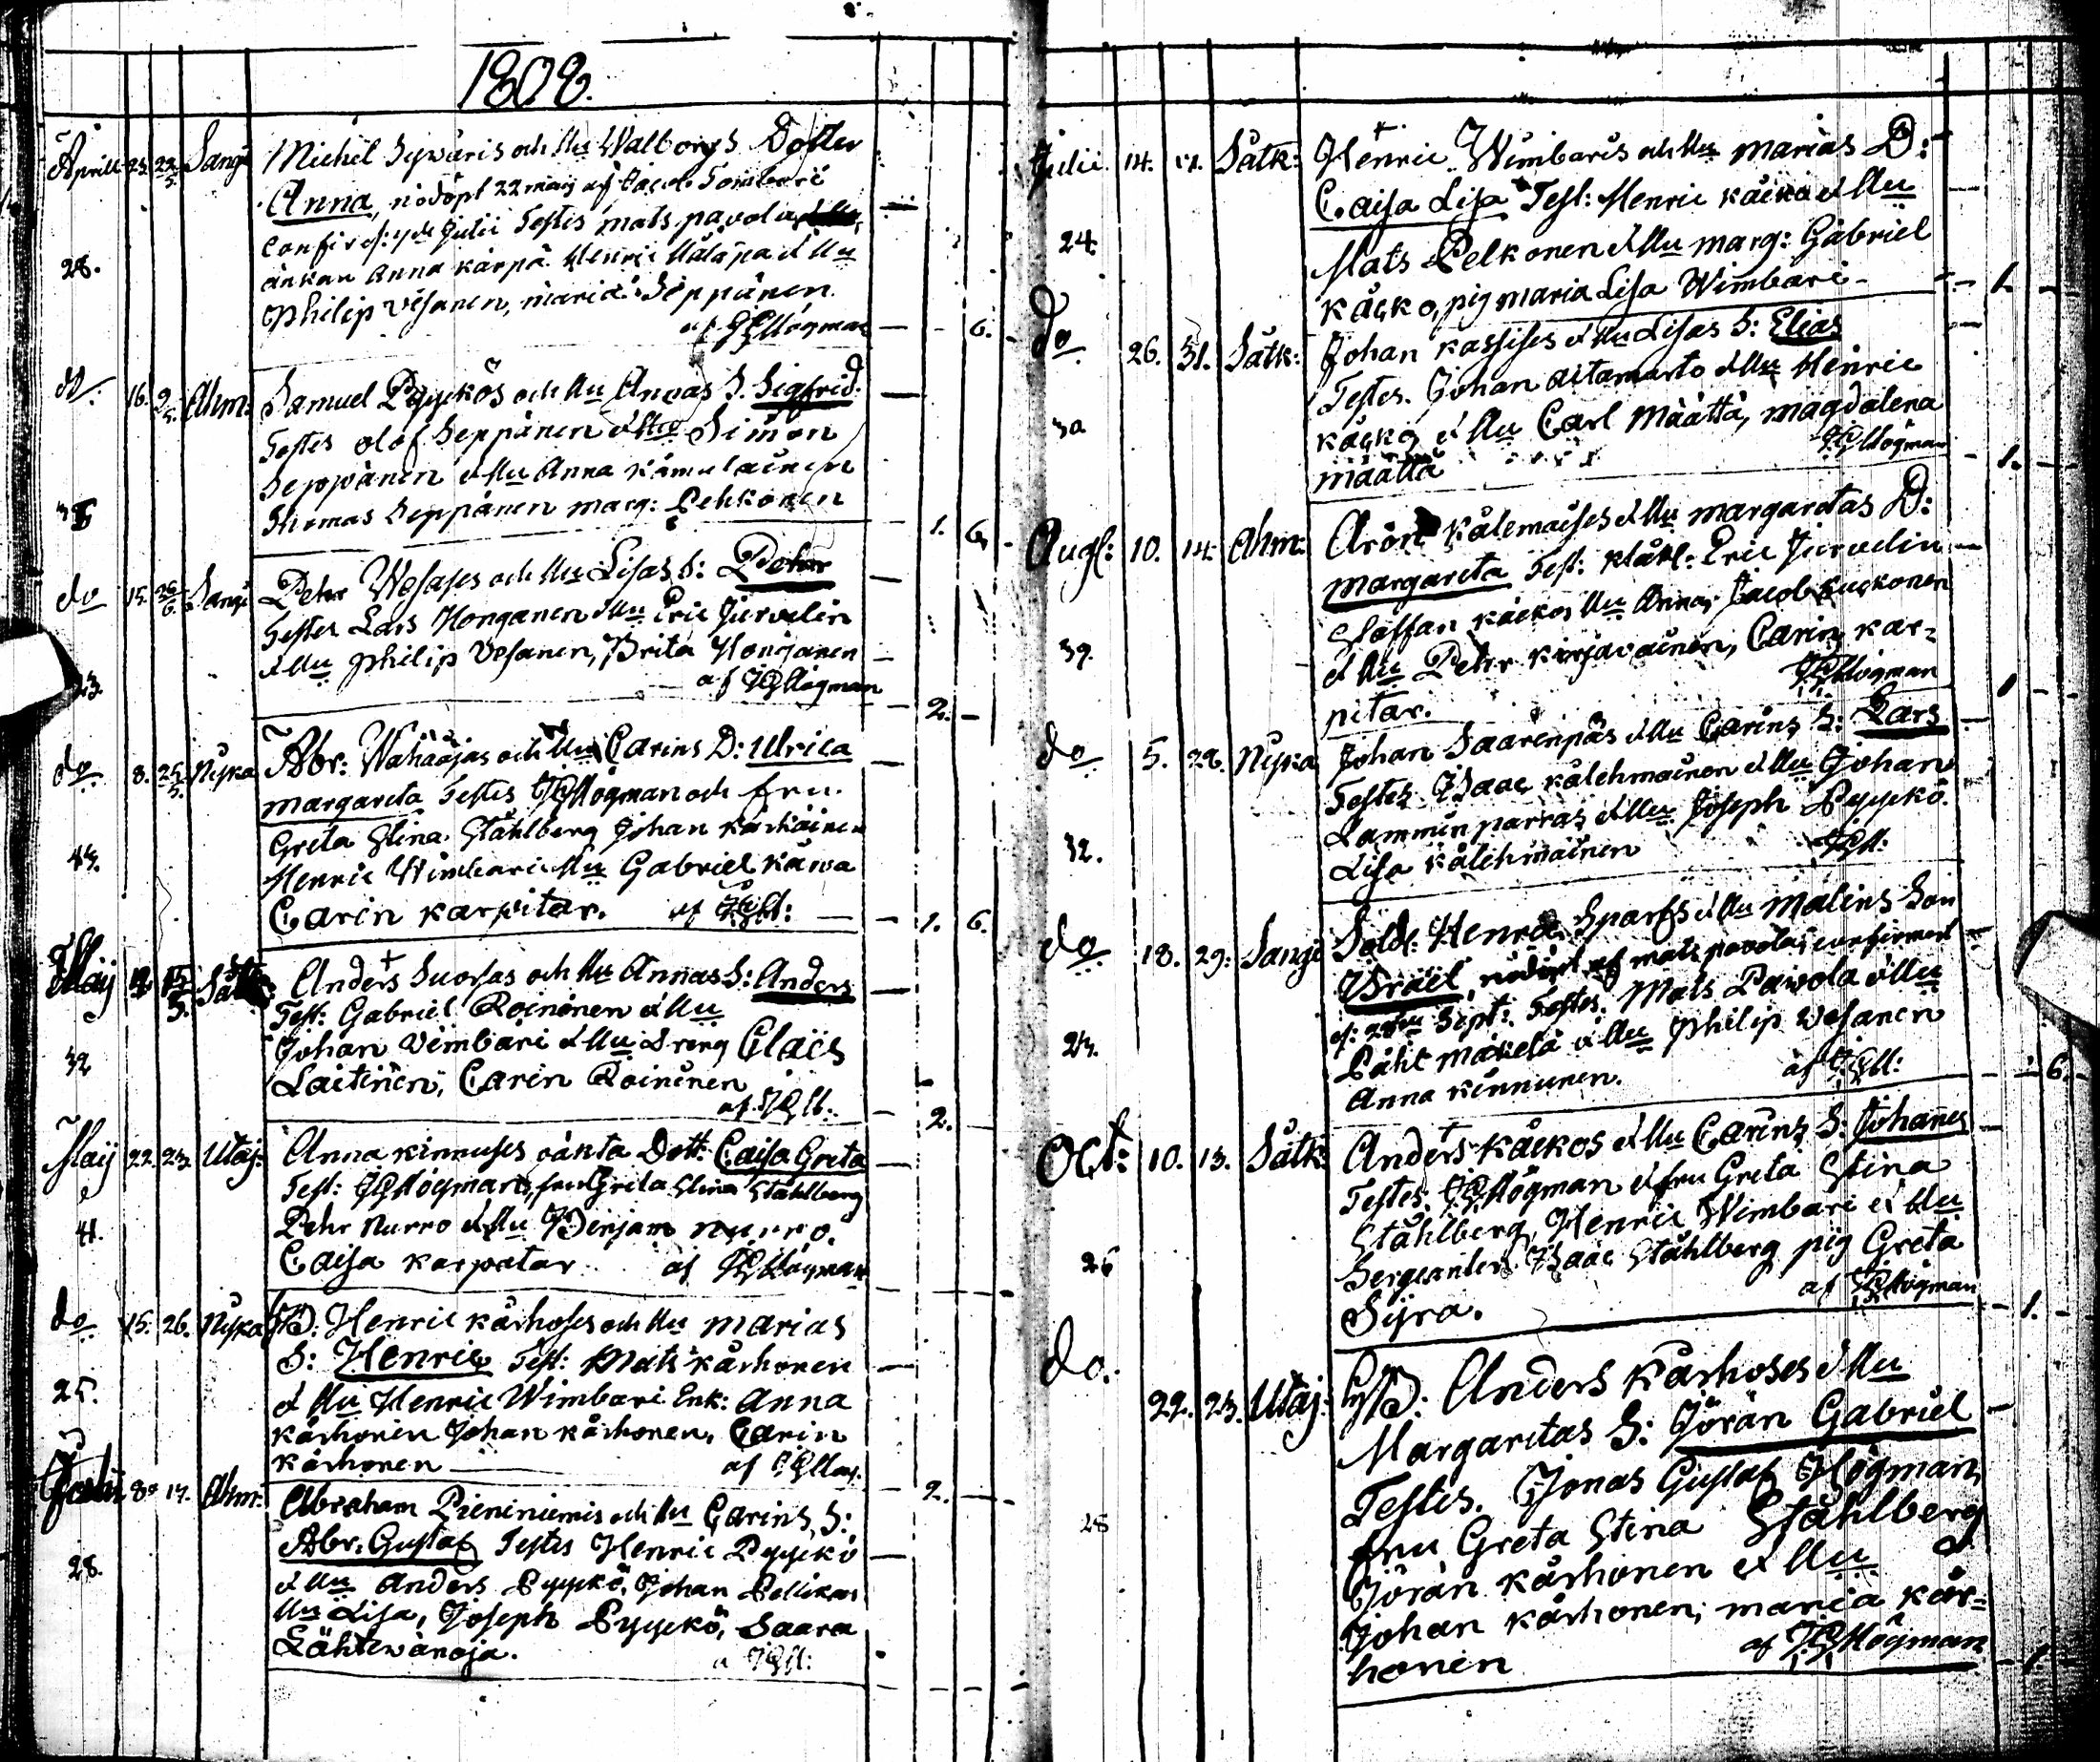 1808.
Aprill 23. 22/5. Sangi Michel Sywäris och Hu Walborgs Dotter
Anna, nödöpt 22 maij af Jacob Tombari
Confir: ef: 7de Julii Testes mats pavola
änkan Anna Karpä. Henric Määtäpä et Hu
28.
Philip Vesanen, maria Seppänen
af JGHögman 6.
do 16. 9/5. Ahm: Samuel Pyykös och Hu Annas S. Sigfrid.
Testes olof Seppänen et Hu Simon
Seppänen et Hu Anna Kämuläinen
Thomas Seppänen marg: Pehkonen
1. 6.
do 15. 26/6. Sangi Pehr Wesases och Hu Lisas S: Pehr
Testes Lars Honganen et Hu Eric Jurvelin
et Hu Philip Vesanen, Brita Honganen
af JGHögman
23.
2.
do 8. 25/5. Nyka Abr: Wähäojas och Hu Carins D: Ulrica
margareta Testes JGHögman och fru
Greta Stina Ståhlberg Johan Kärkäinen
43.
Henric Wimbari et Hu Gabriel Käwa
Carin karpitar. af JGH:
1. 6.
Maij 15/5. Sätk: Anders Suorsas och Hu Annas S: Anders
Test: Gabriel Roininen et Hu
Johan Wimbari et Hu Dreng Claës
32
Laitinen, Carin Roininen
af JGH:
2.
Maij 22. 23. Utaj: Anna kinnuses oäkta Dott: Caisa Greta
Test: JGHögman, fru Greta Stina Ståhlberg
Pehr Nurro et Hu Benjam nurro,
41.
Caisa karpatar af JGHögman
do 15. 26. Nyka NB: Henric kärhoses och Hu marias
S: Henric Test: Mats kärhonen
et Hu Henric Wimbari Enk: Anna
25.
kärhonen Johan kärhonen, Carin
kärhonen af JGHög.
2.
8. 17. Ahm: Abraham Pieniniemis och Hu Carins S:
Abr. Gustaf Testes Henric Pyykö
et Hu Anders Pyykkö, Johan Pellikan
28.
Hu Lisa, Joseph Pyykkö, Saara
Lähtewänoja. af JGH:
Julii 14. 17. Sätk: Henric Wimbaris och Hu marias D:
Caisa Lisa Test: Henric käckö et Hu
24.
Mats Pelkonen et Hu marg: Gabriel
käcko, pig maria Lisa Wimbari
1.
do 26. 31. Sätk: Johan kassises et Hu Lisas S: Elias
Testes. Johan aitamurto et Hu Henric
30
käcko et Hu Carl Määttä, magdalena
määttä JGHögman
1.
Augst: 10. 14. Ahm: Aron kälemaises et Hu margaretas D:
margareta Test: klåck: Eric Jurvelin
Staffan käckos Hu Anna, Jacob kuckonen
39.
et Hu Pehr kirjavainen, Carin kar-
pitar. JGHögman
1
do 5. 28. Nyka Johan Saarenpäs et Hu Carins S: Lars
Testes Isaac kälehmainen et Hu Johan
Lamminparras et Hu Joseph Pyykkö.
32.
Lisa kälehmäinen JGH:
do 18. 29. Sangi Sold: Henric Sparfs et Hu Malins Son
Israël, nödöpt af mats pavola; confirmed
ef: Sept: Testes. Mats Pavola et Hu
23.
Påhl mäkelä et Hu Philip Vesanen
Anna kinnunen. af JGH:
6.
Oct: 10. 13. Sätk: Anders käckos et Hu Carins S: Johanes
Testes: JGHögman et fru Greta Stina
Ståhlberg, Henric Wimbari et Hu
26
Sergeanten Isaac Ståhlberg pig Greta
Syra. af JGHögman
1.
do. 22. 23. Utaj: NB: Anders kärhoses et Hu
Margaretas S: Jöran Gabriel
Testes. Jonas Gustaf Högman,
28
fru Greta Stina Ståhlberg
Jöran kärhonen et Hu
Johan kärhonen, maria kär-
honen af JGHögman
1.